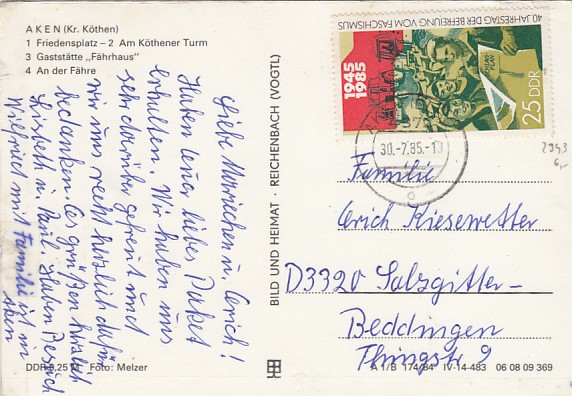 AKEN (Kr. Köthen)
1 Friedensplatz – 2 Am Köthener Turm
3 Gaststätte „Fährhaus"
4 An der Fähre
Liebe Mariechen u. Erich!
Haben Euer liebes Paket
erhalten. Wir haben uns
sehr darüber gefreut und
wir uns recht herzlich dafür
bedanken. Es grüßen herzlich
Lisbeth u. Paul. Haben Besuch
Wilfried mit Familie ist in
Aken
DDR 0,25 M Foto: Melzer
BILD UND HEIMAT · REICHENBACH (VOGTL)
40. JAHRESTAG DER BEFREIUNG VOM FASCHISMUS
1945
1985
25 DDR
30.-7.85.-13
2943
6,-
Familie
Erich Kiesewetter
D3320 Salzgitter-
Beddingen
Thingstr 9
A 1/B 174/84 IV-14-483 06 08 09 369